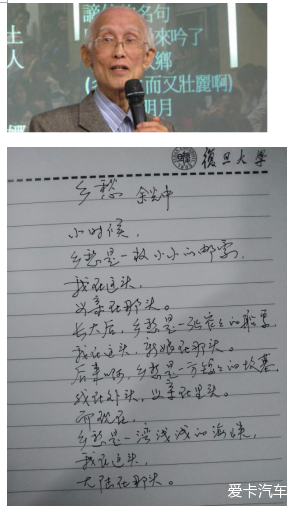 讓
名句
土
來吟了
人
鄉
(
而又壯麗啊)
明月
鄉
復旦大學
乡愁 余光中
小时候，
乡愁是一枚小小的邮票，
我在这头，
母亲在那头。
长大后，乡愁是一张窄窄的船票，
我在这头，新娘在那头。
后来啊，乡愁是一方矮矮的坟墓，
我在外头，母亲在里头。
而现在，
乡愁是一湾浅浅的海峡，
我在这头，
大陆在那头。
爱卡汽车